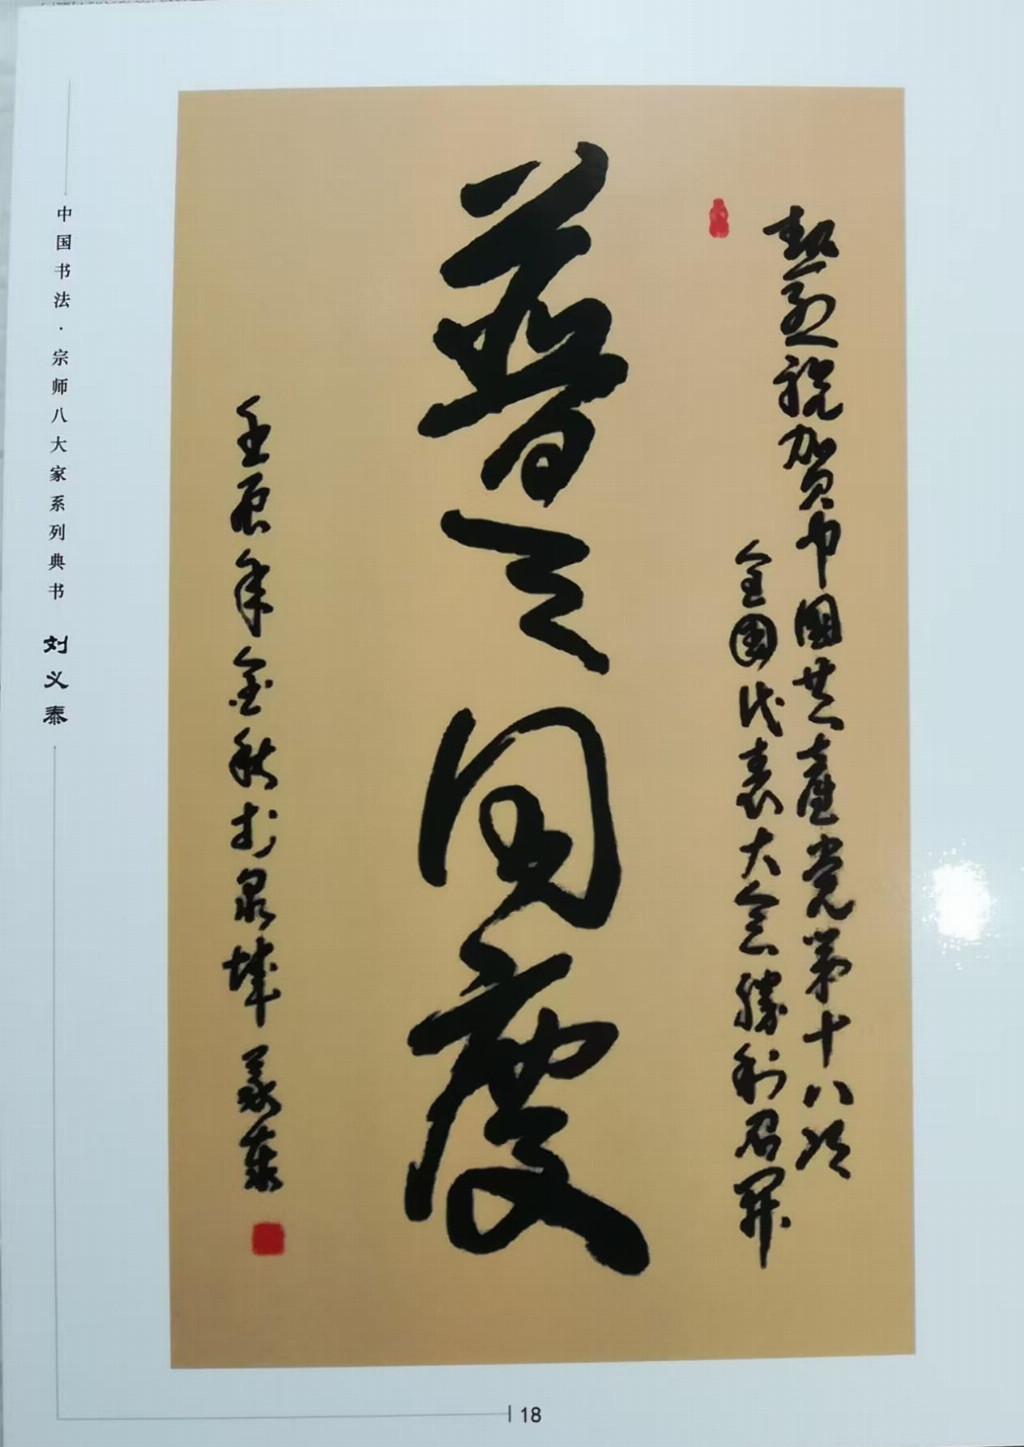 熱烈祝贺中國共產党第十八次
全國代表大会勝利召開
普天同慶
壬辰年金秋於泉城 義泰
中国书法·宗师八大家系列典书 刘义泰
18